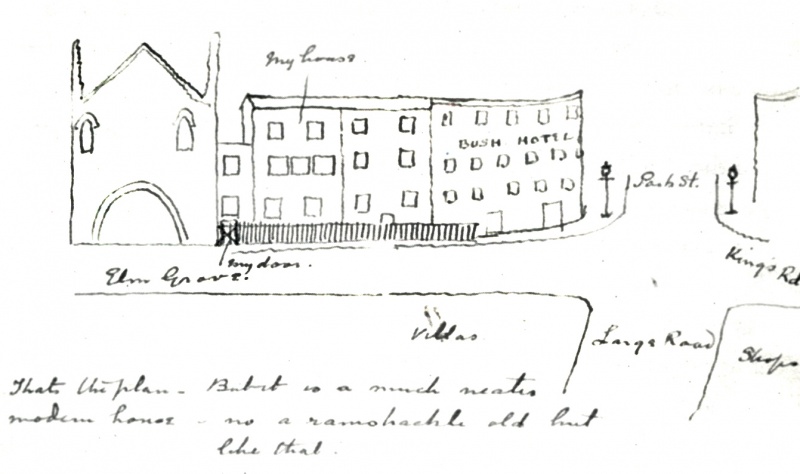 My house.
BUSH HOTEL
Park St.
King's Rd
my door.
Elm Grove.
Villas
Large Road
Shops
Thats the plan - But it is a much neater
modern house - no a ramshackle old hut
like that.